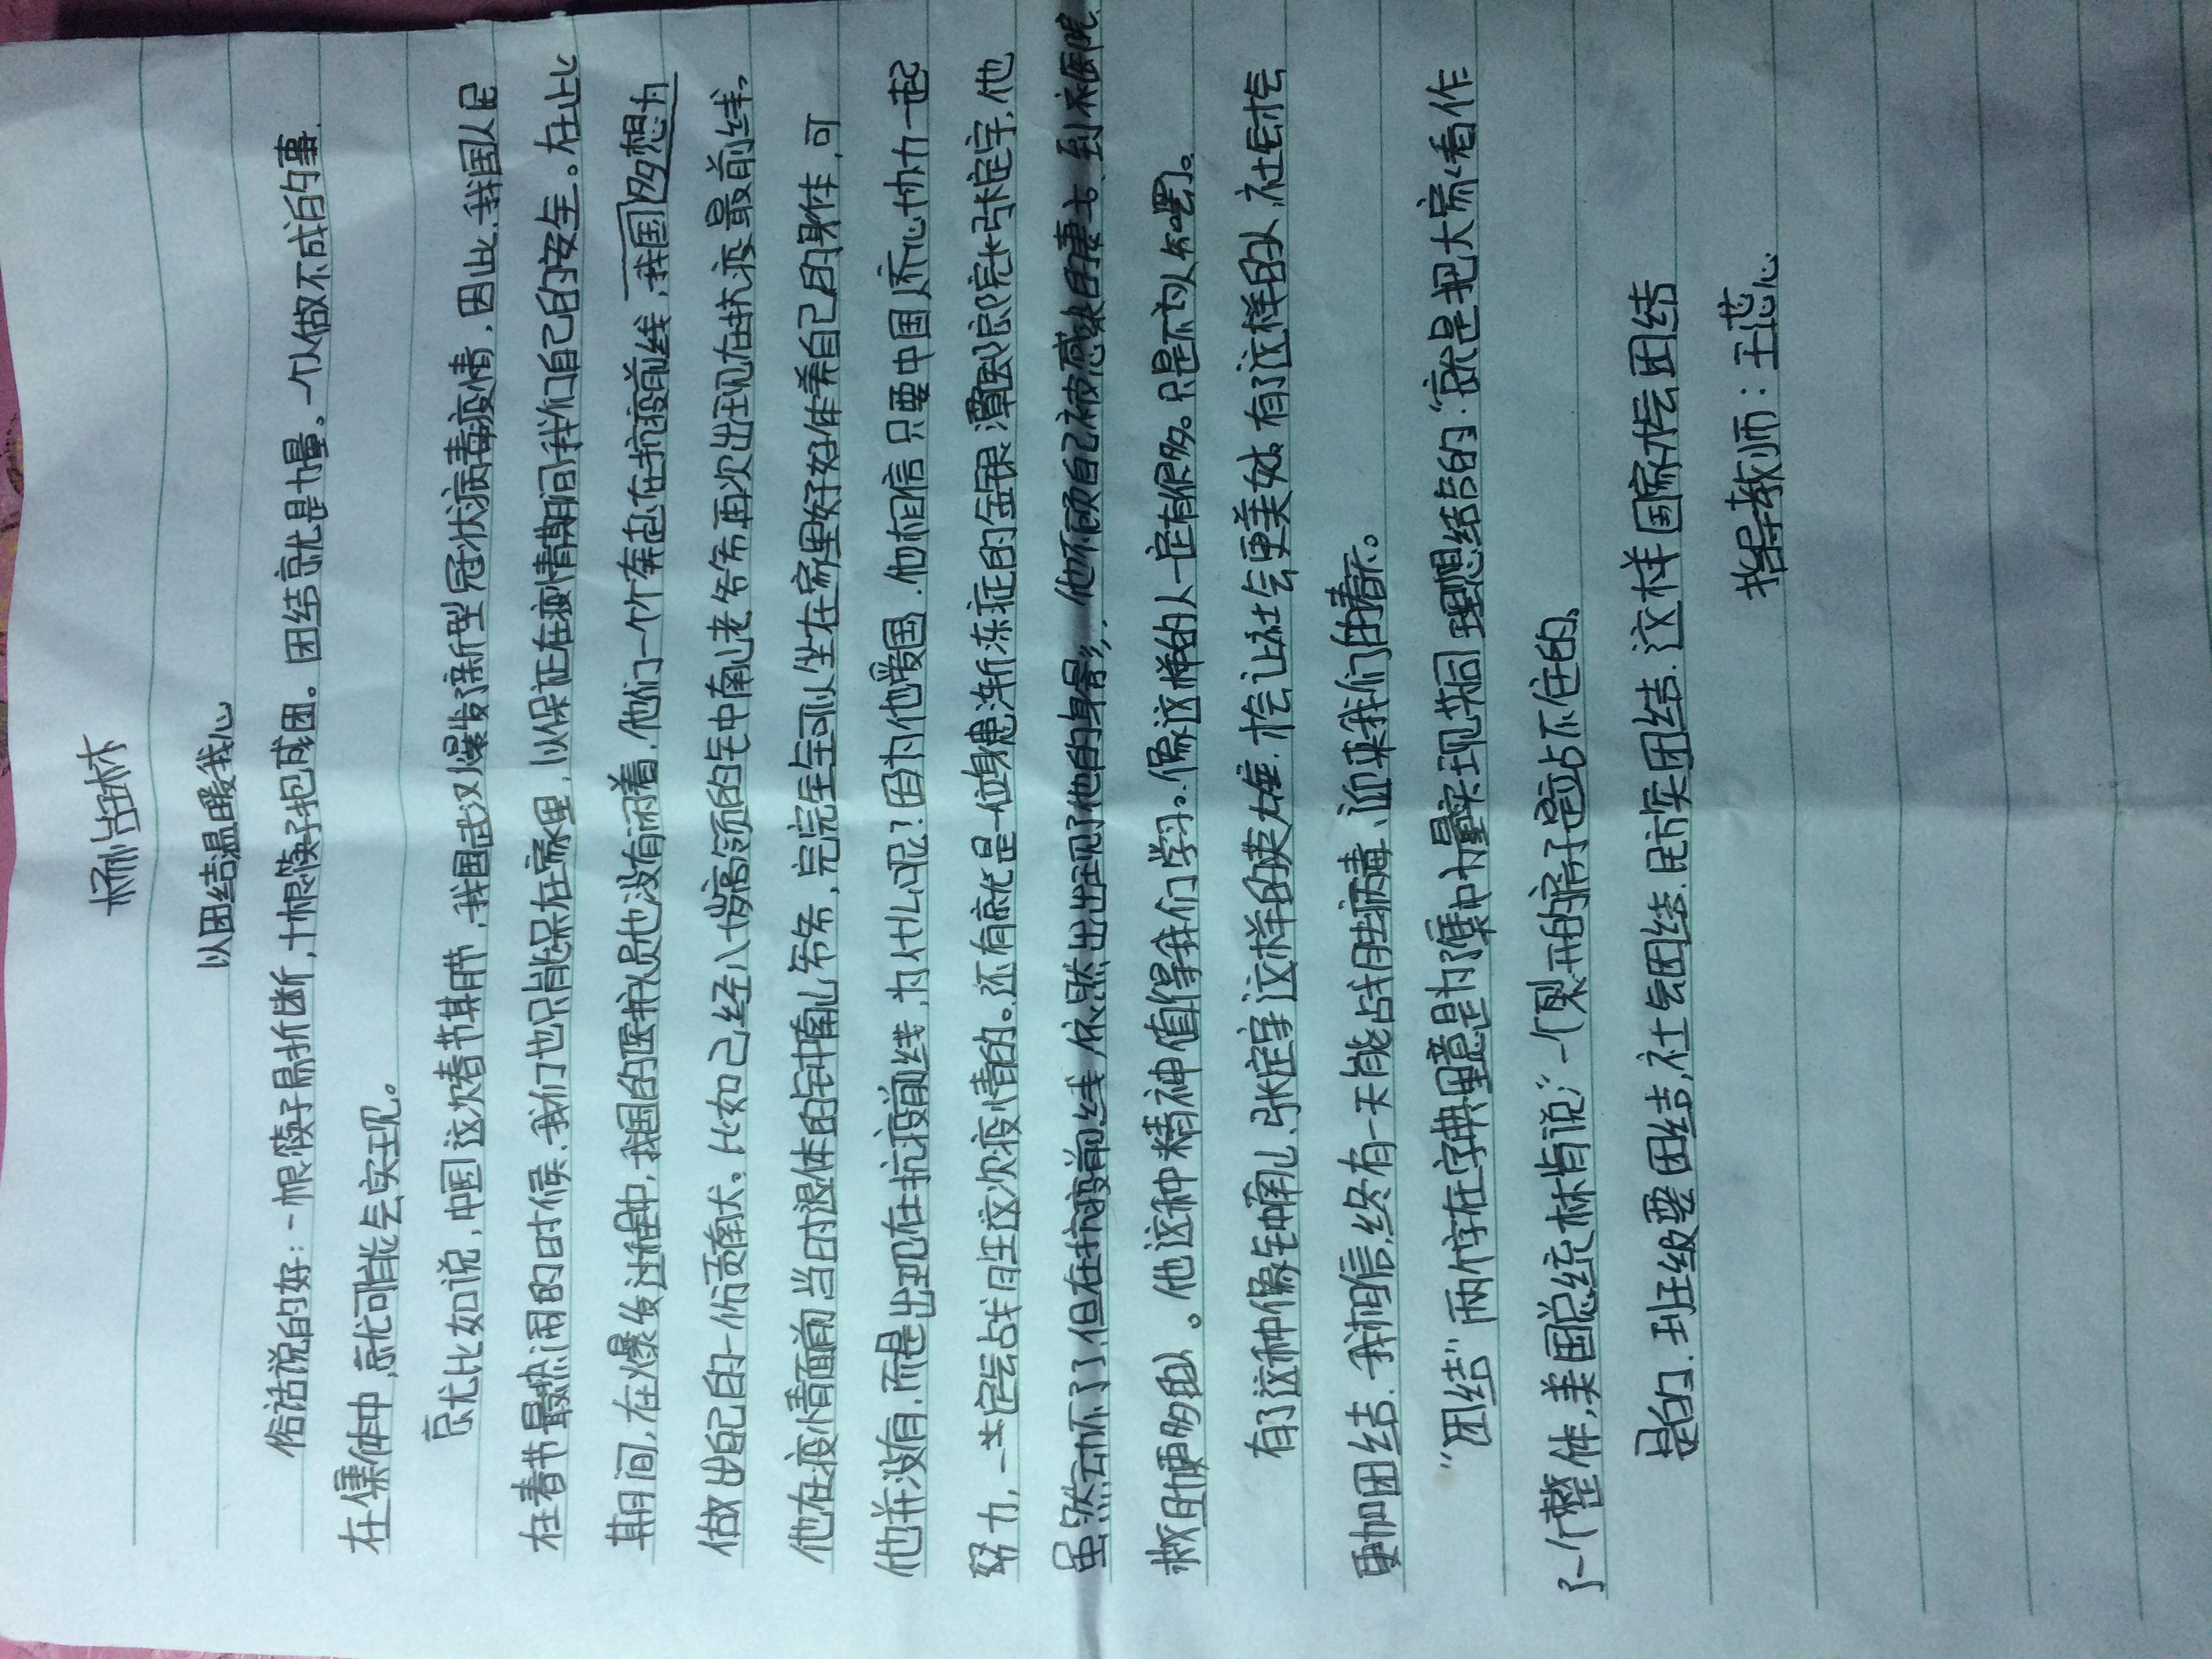 以团结温暖我心
俗话说的好:一根筷子易折断,十根筷子抱成团。团结就是力量。一个人做不成的事.
在集体中,就可能会实现。
就比如说,中国这次春节期节,我国武汉爆发了新型冠状病毒疫情,因此.我国人民
在春节最热闹的时候.我们也只能呆在家里,以保证在疫情期间我们自己的安全。在此
期间,在爆发过程中,我国的医护人员也没有闲着.他们一个个奔赴在抗疫前线,我国多想为
做出自己的一份贡献。比如已经八十岁高领的钟南山老爷爷再次出现在抗疫最前线.
他在疫情面前当时退休的钟南山爷爷,完完全全可以坐在家里好好休养自己的身体,可
他并没有.而是出现在抗疫前线,为什么呢?因为他爱国.他相信只要中国人齐心协力一起
努力,一定会战胜这次疫情的.还有就是一位身患渐冻症的金银潭医院院长张定宇,他
虽然动不了了.但在抗疫前线依然出出现了他的身影,他不顾自己被感染的妻子.到不医院
救助更多的人。他这种精神值得我们学习.像这样的人一定有很多。只是不为人知罢了。
有了这种像钟南山、张定宇这样的英雄.才会让社会更美好.有了这样的人.社会才会
更加团结.我相信,终有一天能战胜病毒、迎来我们的春天。
“团结”两个字在字典里意思为了集中力量实现共同理想结的.就是把大家看作
了一个整体,美国总统林肯说“一个裂开的房子是站不住的.
是的.班级要团结,社会团结.民族团结.这样国家才会团结
指导教师:王蕊